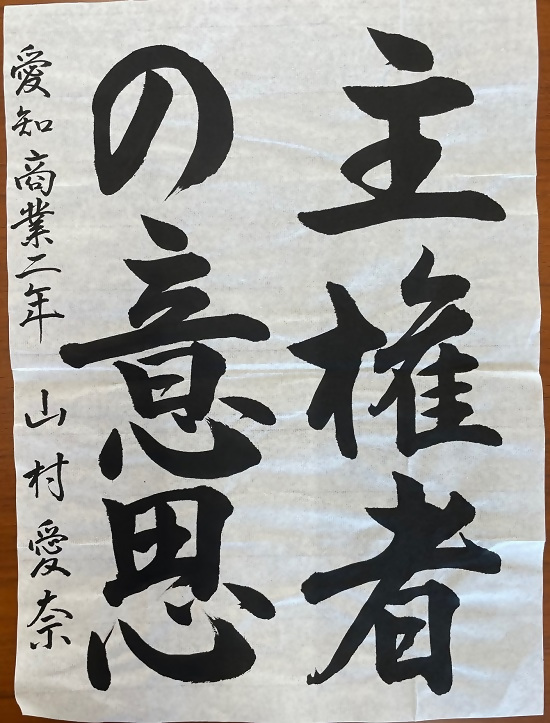 主権者
の意思
愛知商業二年 山村愛奈